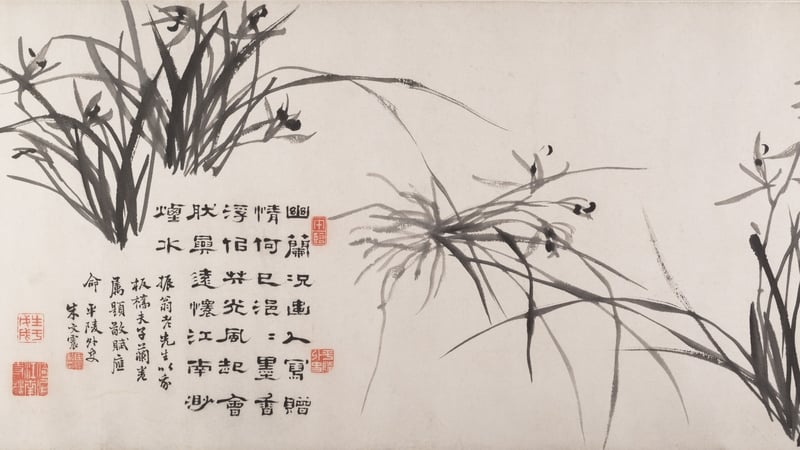 幽蘭況幽人寫贈
情何已浥〻墨香
浮佀共光風起會
肰興遠懷江南渺
煙水
振翁老先生以家
板橋夫子蘭卷
属題敬賦應
命 平陵外史
朱文震